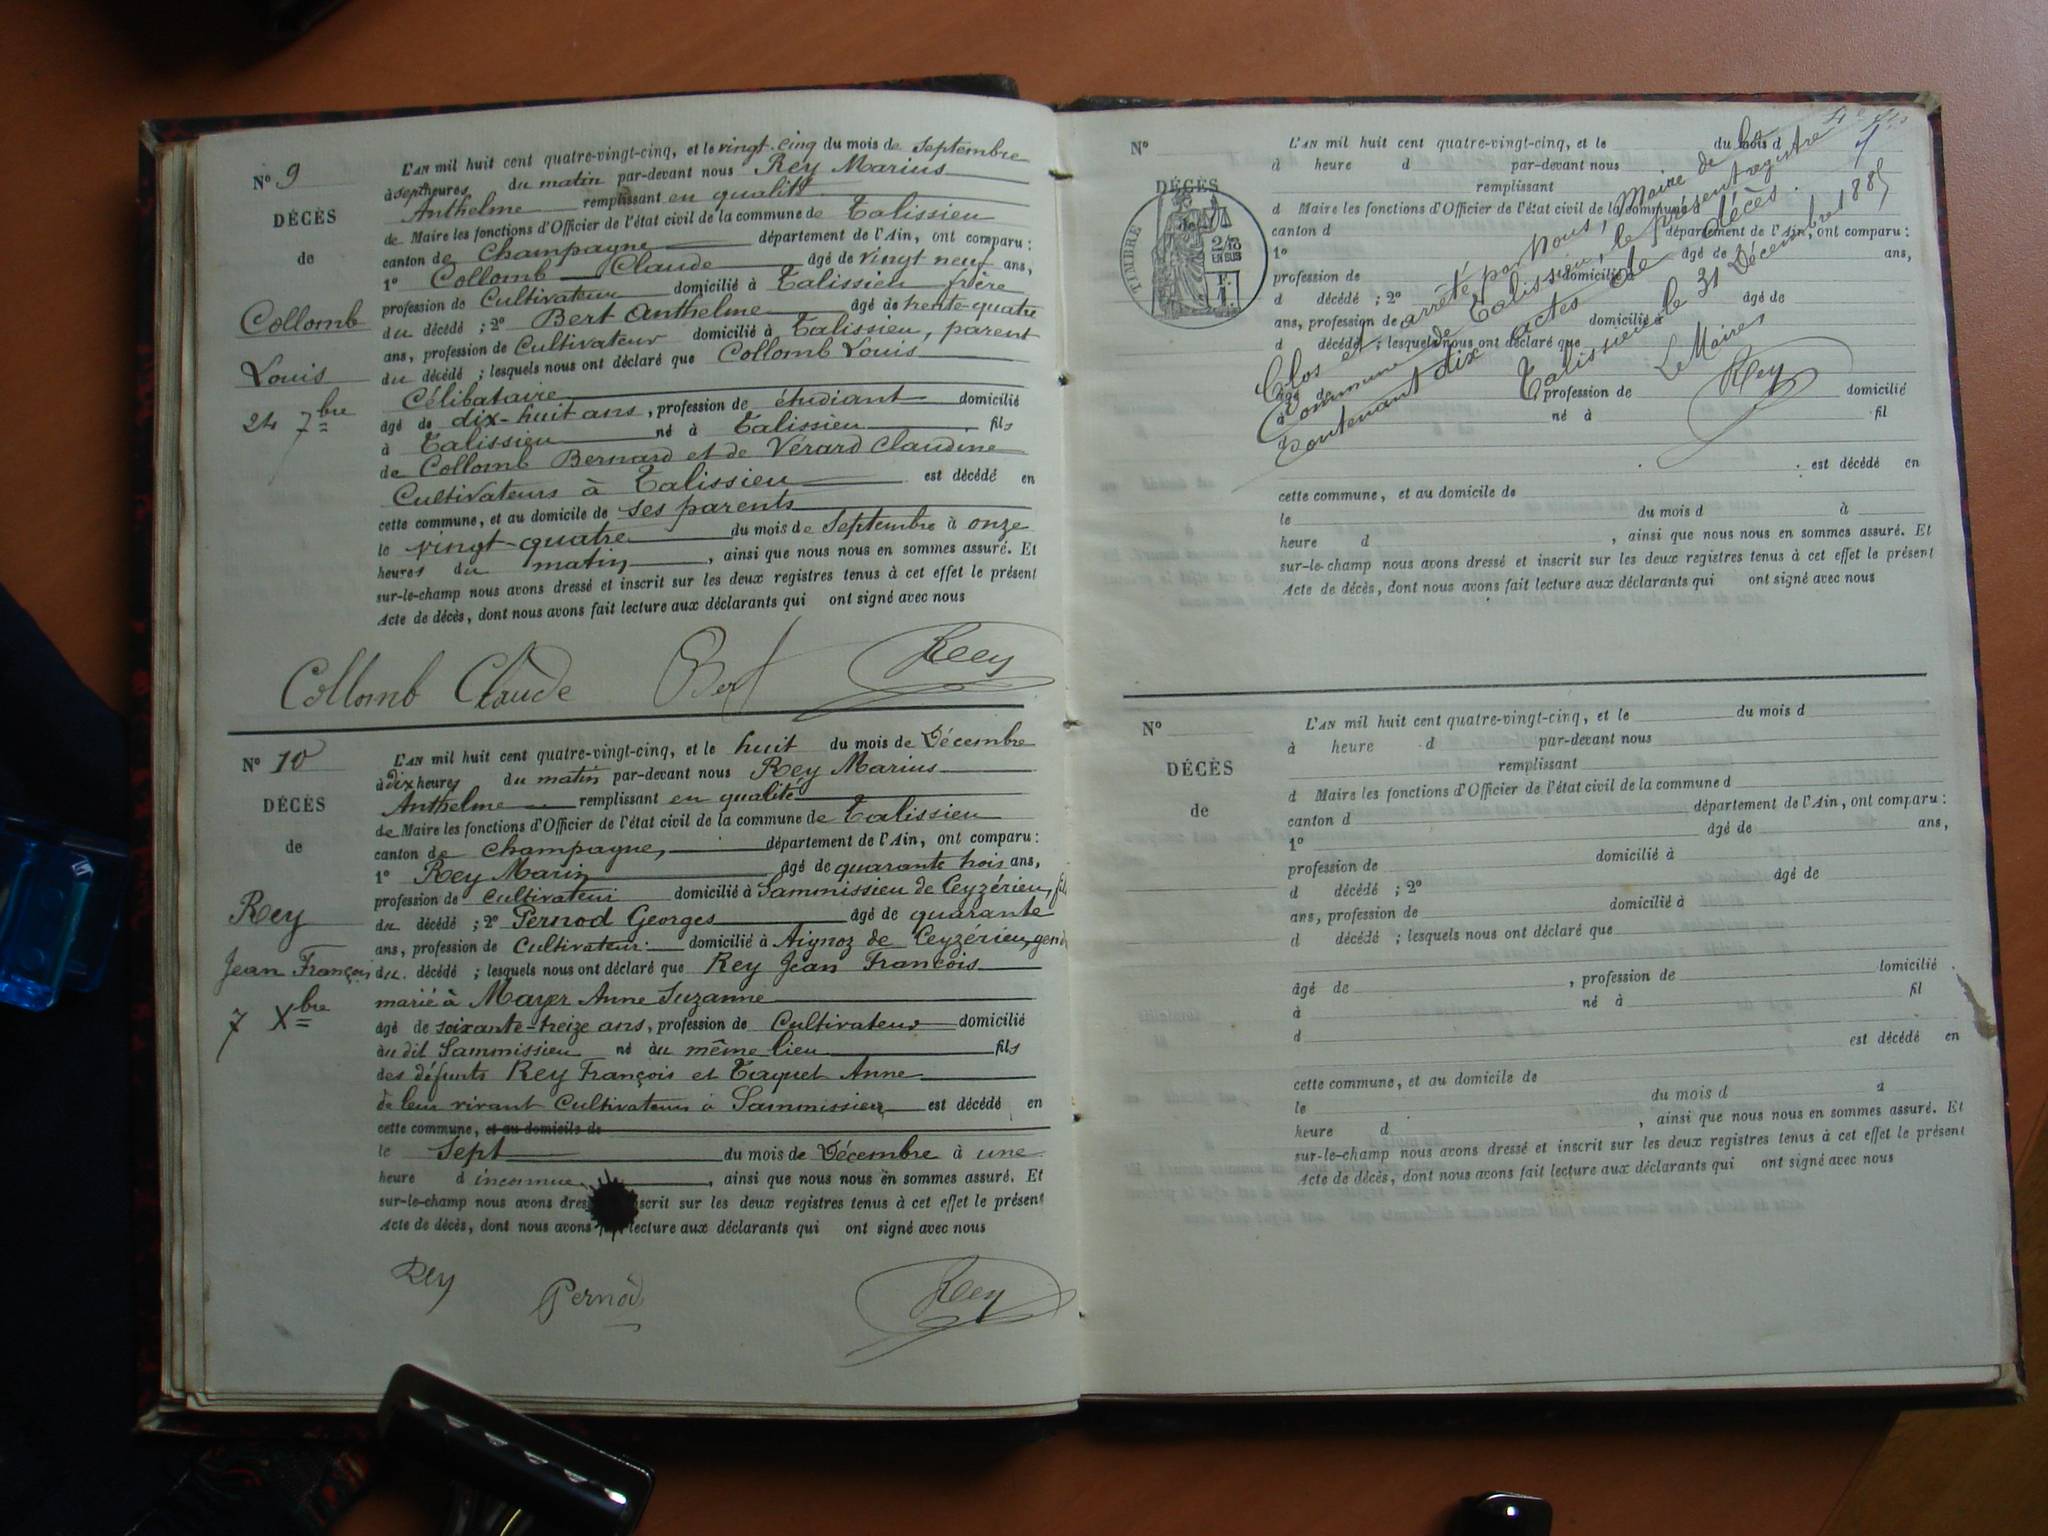 N° 9
DÉCÈS
de
Collomb
Louis
24 7bre
L'AN mil huit cent quatre-vingt-cinq, et le vingt-cinq du mois de Septembre
à sept heures du matin par-devant nous Rey Marius
Anthelme remplissant en qualité
de Maire les fonctions d'Officier de l'état civil de la commune de Talissieu
canton de Champagne département de l'Ain, ont comparu :
1° Collomb Claude âgé de vingt neuf ans,
profession de Cultivateur domicilié à Talissieu frère
du décédé ; 2° Bert Anthelme âgé de trente-quatre
ans, profession de Cultivateur domicilié à Talissieu, parent
du décédé ; lesquels nous ont déclaré que Collomb Louis
Célibataire
âgé de dix-huit ans, profession de étudiant domicilié
à Talissieu né à Talissieu fils
de Collomb Bernard et de Vérard Claudine
Cultivateurs à Talissieu est décédé en
cette commune, et au domicile de ses parents
le vingt-quatre du mois de Septembre à onze
heures du matin, ainsi que nous nous en sommes assuré. Et
sur-le-champ nous avons dressé et inscrit sur les deux registres tenus à cet effet le présent
Acte de décès, dont nous avons fait lecture aux déclarants qui ont signé avec nous
Collomb Claude Bert Rey
N° 10
DÉCÈS
de
Rey
Jean François
7 Xbre
L'AN mil huit cent quatre-vingt-cinq, et le huit du mois de Décembre
à dix heures du matin par-devant nous Rey Marius
Anthelme remplissant en qualité
de Maire les fonctions d'Officier de l'état civil de la commune de Talissieu
canton de Champagne, département de l'Ain, ont comparu :
1° Rey Marin âgé de quarante trois ans,
profession de Cultivateur domicilié à Sammissieu de Ceyzérieu,
du décédé ; 2° Pernod Georges âgé de quarante
ans, profession de Cultivateur domicilié à Aignoz de Ceyzérieu, gend
du décédé ; lesquels nous ont déclaré que Rey Jean François
marié à Mayer Anne Suzanne
âgé de soixante-treize ans, profession de Cultivateur domicilié
au dit Sammissieu né au même lieu fils
des défunts Rey François et Taquet Anne
de leur vivant Cultivateurs à Sammissieu est décédé en
cette commune, et au domicile de
le Sept du mois de Décembre à une
heure d inconnue, ainsi que nous nous en sommes assuré. Et
sur-le-champ nous avons dres scrit sur les deux registres tenus à cet effet le présent
Acte de décès, dont nous avons lecture aux déclarants qui ont signé avec nous
Rey Pernod Rey
N°
DÉCÈS
de
TIMBRE
2/10
EN SUS
F.
1.
L'AN mil huit cent quatre-vingt-cinq, et le du mois d
à heure d par-devant nous
remplissant
d Maire les fonctions d'Officier de l'état civil de la commune d
canton d département de l'Ain, ont comparu :
1° âgé de ans,
profession de domicilié à
d décédé ; 2° âgé de
ans, profession de domicilié à
d décédé ; lesquels nous ont déclaré que
âgé de profession de domicilié
à né à fil
d
est décédé en
cette commune, et au domicile de
le du mois d à
heure d , ainsi que nous nous en sommes assuré. Et
sur-le-champ nous avons dressé et inscrit sur les deux registres tenus à cet effet le présent
Acte de décès, dont nous avons fait lecture aux déclarants qui ont signé avec nous
Clos et arrêté par Nous, Maire de la
Commune de Talissieu, le présent registre
contenant dix actes de décès.
Talissieu le 31 Décembre 1885
Le Maire
Rey
N°
DÉCÈS
de
L'AN mil huit cent quatre-vingt-cinq, et le du mois d
à heure d par-devant nous
remplissant
d Maire les fonctions d'Officier de l'état civil de la commune d
canton d département de l'Ain, ont comparu :
1° âgé de ans,
profession de domicilié à
d décédé ; 2° âgé de
ans, profession de domicilié à
d décédé ; lesquels nous ont déclaré que
âgé de , profession de domicilié
à né à fil
d
est décédé en
cette commune, et au domicile de
le du mois d à
heure d , ainsi que nous nous en sommes assuré. Et
sur-le-champ nous avons dressé et inscrit sur les deux registres tenus à cet effet le présent
Acte de décès, dont nous avons fait lecture aux déclarants qui ont signé avec nous